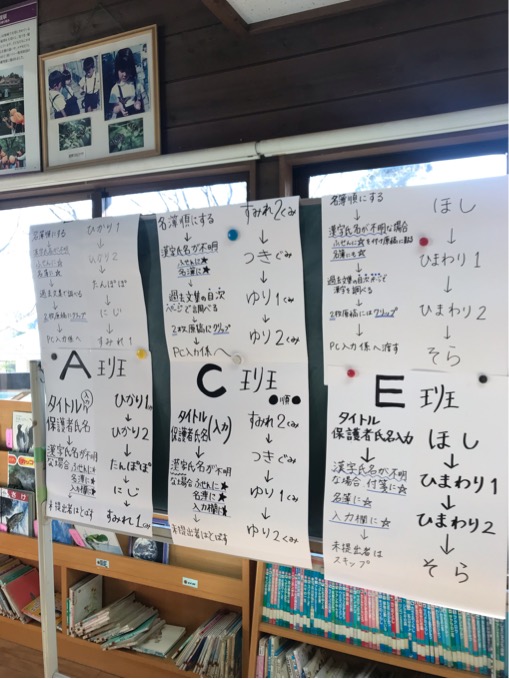 名簿順にする
↓
漢字氏名が不明
ふせんに☆
名簿に☆
↓
過去文集で調べる
↓
2枚原稿にクリップ
↓
PC入力係へ
ひかり1
↓
ひかり2
↓
たんぽぽ
↓
にじ
↓
すみれ1
名簿順にする
↓
漢字氏名が不明
ふせんに★
名簿に★
↓
過去文集の目次
で調べる
↓
2枚原稿にクリップ
↓
PC入力係へ
すみれ2くみ
↓
つきぐみ
↓
ゆり1くみ
↓
ゆり2くみ
名簿順にする
↓
漢字氏名が不明な場合
ふせんに☆を付け原稿に貼る
名簿にも☆
↓
過去文集の目次で
漢字を調べる
↓
2枚原稿にはクリップ
↓
PC入力係へ渡す
ほし
↓
ひまわり1
↓
ひまわり2
↓
そら
A班
タイトル
保護者氏名
入力
↓
漢字氏名が不明
な場合 ふせんに★
名簿に★
入力欄に★
↓
未提出者はとばす
ひかり1
↓
ひかり2
↓
たんぽぽ
↓
にじ
↓
すみれ1くみ
C班
●順●
タイトル
保護者氏名(入力)
↓
漢字氏名が不明
な場合 ふせんに★
名簿に★
入力欄に★
↓
未提出者はとばす
すみれ2くみ
↓
つきぐみ
↓
ゆり1くみ
↓
ゆり2くみ
E班
タイトル
保護者氏名入力
↓
漢字氏名が不明
な場合 付箋に☆
名簿に☆
入力欄に☆
↓
未提出者は
スキップ
ほし
↓
ひまわり1
↓
ひまわり2
↓
そら